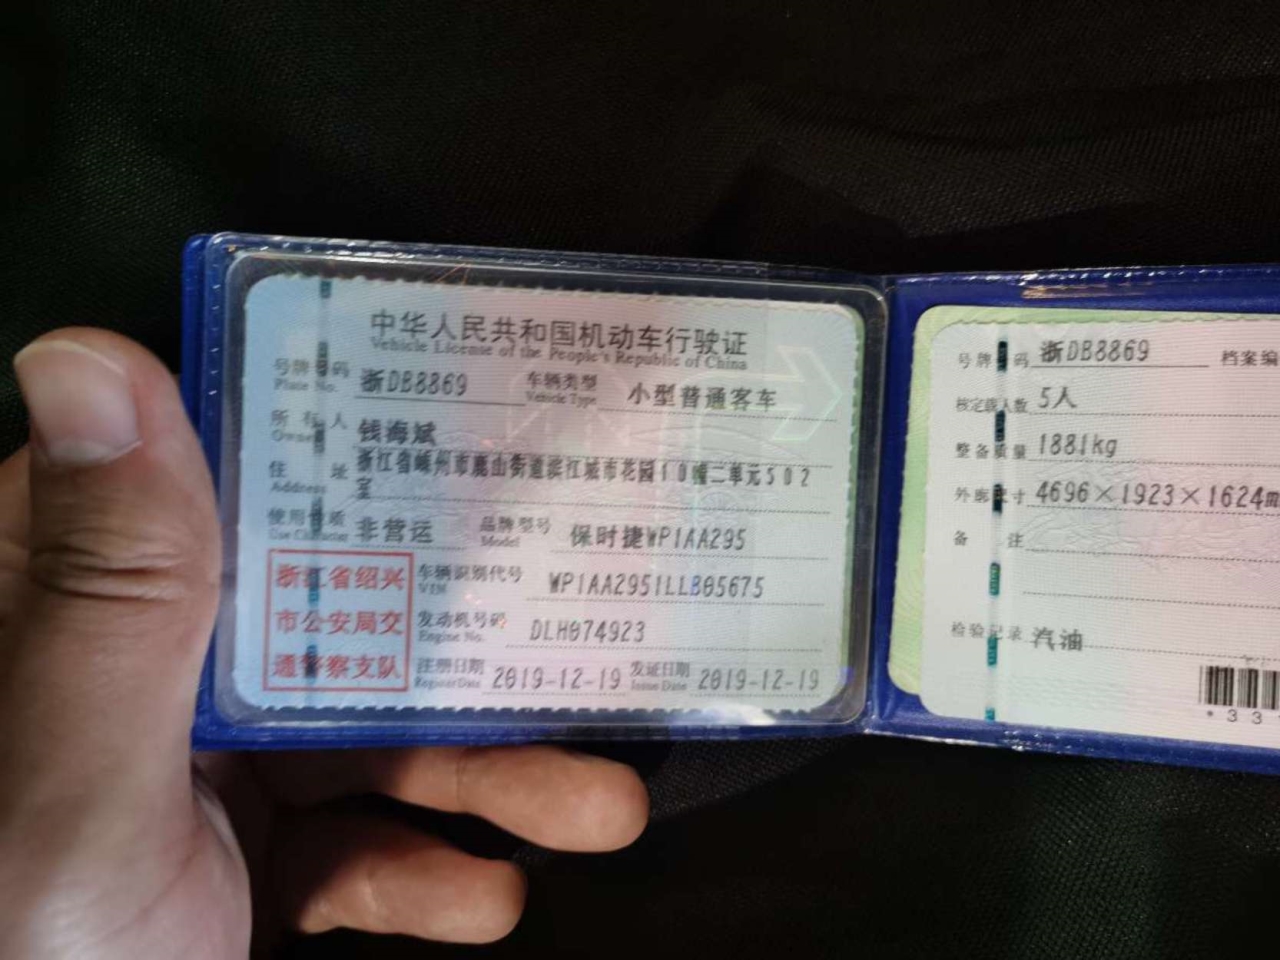 中华人民共和国机动车行驶证
Vehicle License of the People's Republic of China
号牌号码 浙DB8869 车辆类型 小型普通客车
Plate No. Vehicle Type
所有人 钱海斌
Owner
住址 浙江省嵊州市鹿山街道滨江城市花园10幢二单元502
Address 室
使用性质 非营运 品牌型号 保时捷WP1AA295
Use Character Model
浙江省绍兴
市公安局交
通警察支队
车辆识别代号 WP1AA2951LLB05675
VIN
发动机号码 DLH074923
Engine No.
注册日期 2019-12-19 发证日期 2019-12-19
Register Date Issue Date
号牌号码 浙DB8869 档案编
核定载人数 5人
整备质量 1881kg
外廓尺寸 4696×1923×1624m
备注
检验记录 汽油
*33